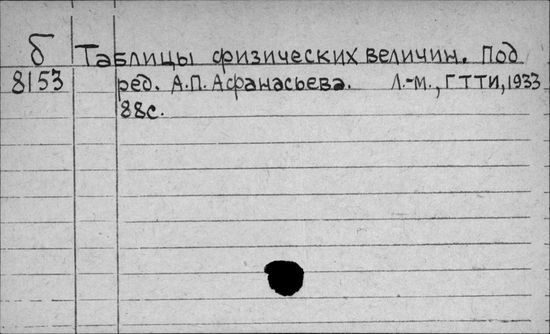 б Таблицы физических величин. Под
8153 ред. А.П. Афанасьева. Л.-М., ГТТИ, 1933
88с.